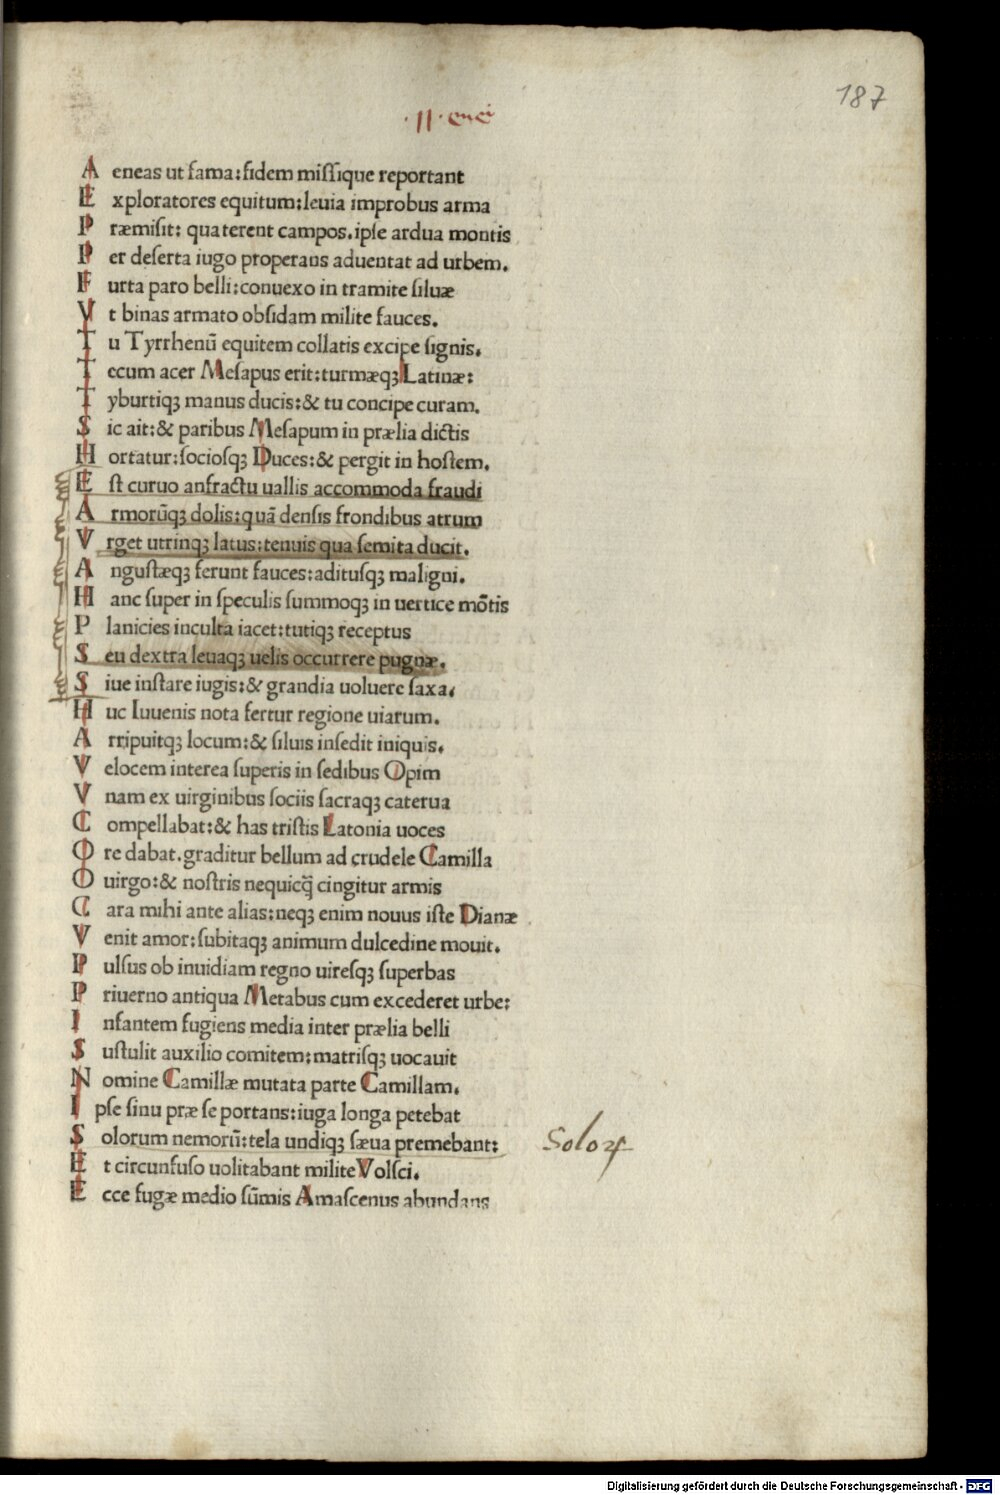 187
·II· enei
A eneas ut fama: fidem missique reportant
E xploratores equitum: leuia improbus arma
P ræmisit: quaterent campos. ipse ardua montis
P er deserta iugo properans aduentat ad urbem.
F urta paro belli: conuexo in tramite siluæ
V t binas armato obsidam milite fauces.
T u Tyrrhenū equitem collatis excipe signis.
T ecum acer Mesapus erit: turmæqꝫ Latinæ:
T yburtiqꝫ manus ducis: & tu concipe curam.
S ic ait: & paribus Mesapum in prælia dictis
H ortatur: sociosqꝫ Duces: & pergit in hostem.
E st curuo anfractu uallis accommoda fraudi
A rmorūqꝫ dolis: quā densis frondibus atrum
V rget utrinqꝫ latus: tenuis qua semita ducit.
A ngustæqꝫ ferunt fauces: aditusqꝫ maligni.
H anc super in speculis summoqꝫ in uertice mōtis
P lanicies inculta iacet: tutiqꝫ receptus
S eu dextra leuaqꝫ uelis occurrere pugnæ.
S iue instare iugis: & grandia uoluere saxa.
H uc Iuuenis nota fertur regione uiarum.
A rripuitqꝫ locum: & siluis insedit iniquis.
V elocem interea superis in sedibus Opim
V nam ex uirginibus sociis sacraqꝫ caterua
C ompellabat: & has tristis Latonia uoces
O re dabat. graditur bellum ad crudele Camilla
O uirgo: & nostris nequicq̄ cingitur armis
C ara mihi ante alias: neqꝫ enim nouus iste Dianæ
V enit amor: subitaqꝫ animum dulcedine mouit.
P ulsus ob inuidiam regno uiresqꝫ superbas
P riuerno antiqua Metabus cum excederet urbe:
I nfantem fugiens media inter prælia belli
S ustulit auxilio comitem: matrisqꝫ uocauit
N omine Camillæ mutata parte Camillam.
I pse sinu præ se portans: iuga longa petebat
S olorum nemorū: tela undiqꝫ sæua premebant:
Soloꝝ
E t circunfuso uolitabant milite Volsci.
E cce fugæ medio sūmis Amascenus abundans
Digitalisierung gefördert durch die Deutsche Forschungsgemeinschaft - DFG